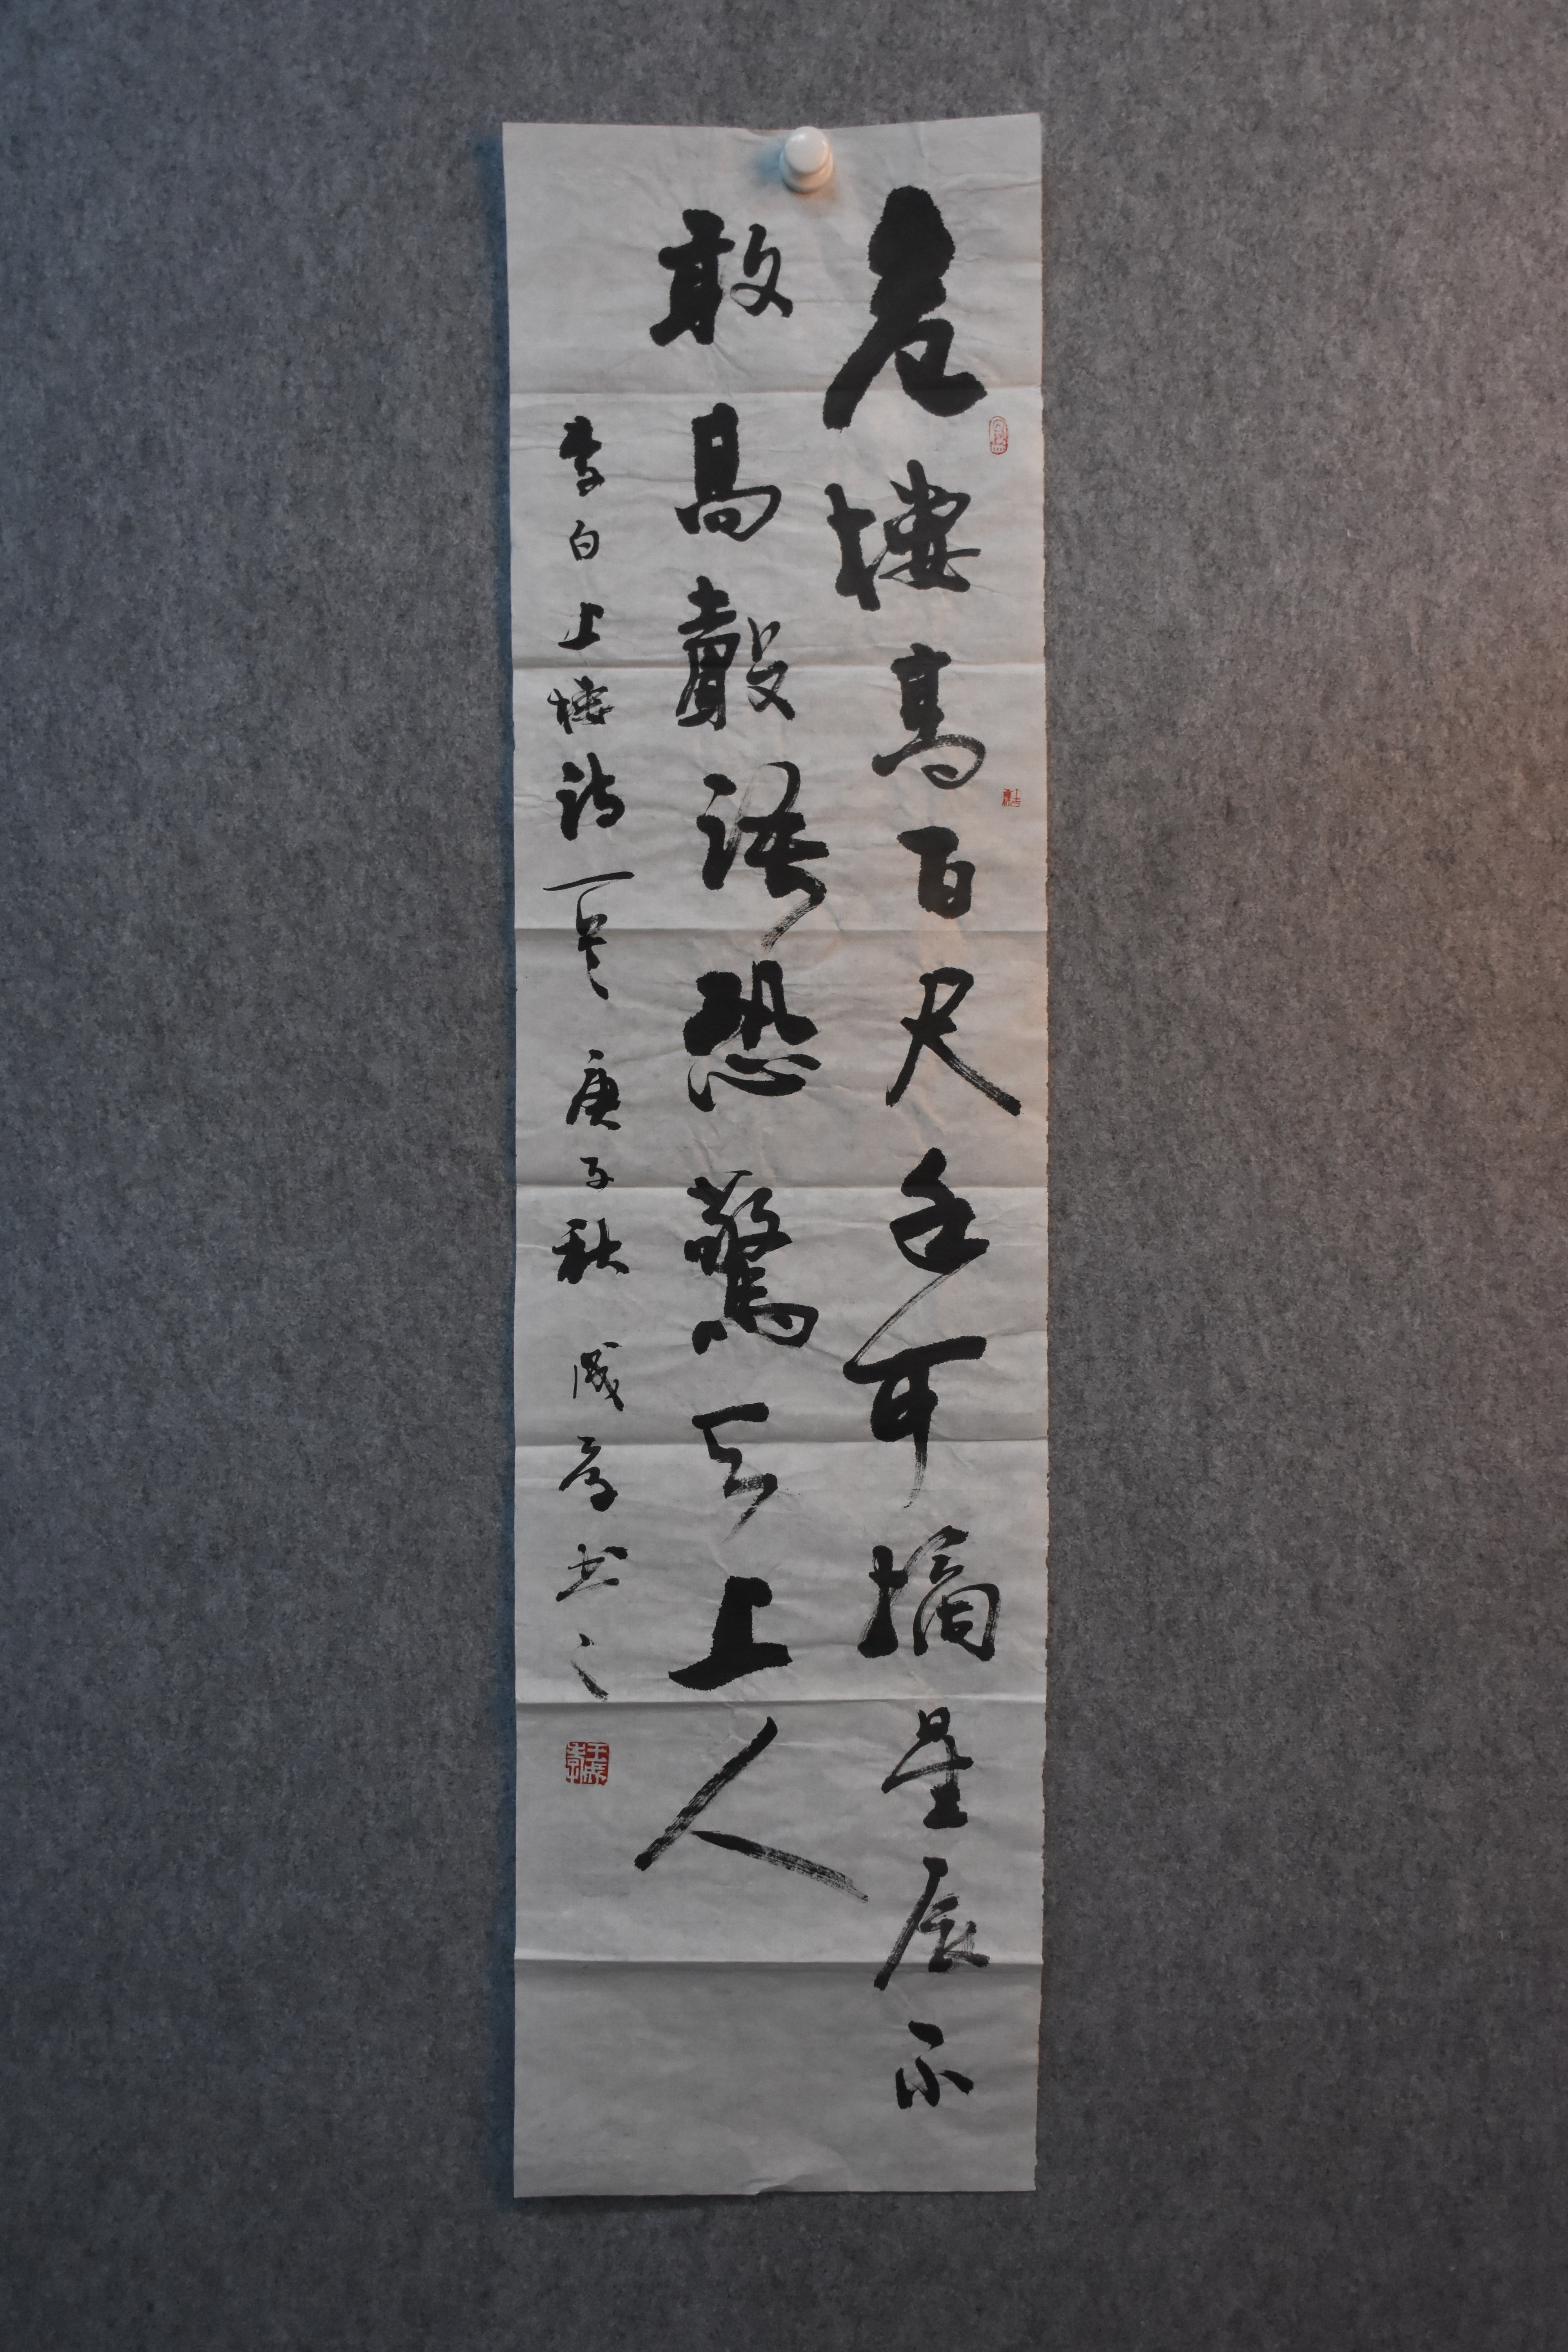 危樓高百尺手可摘星辰不
敢高聲語恐驚天上人
李白上樓詩一首 庚子秋 成孝书之
王成孝